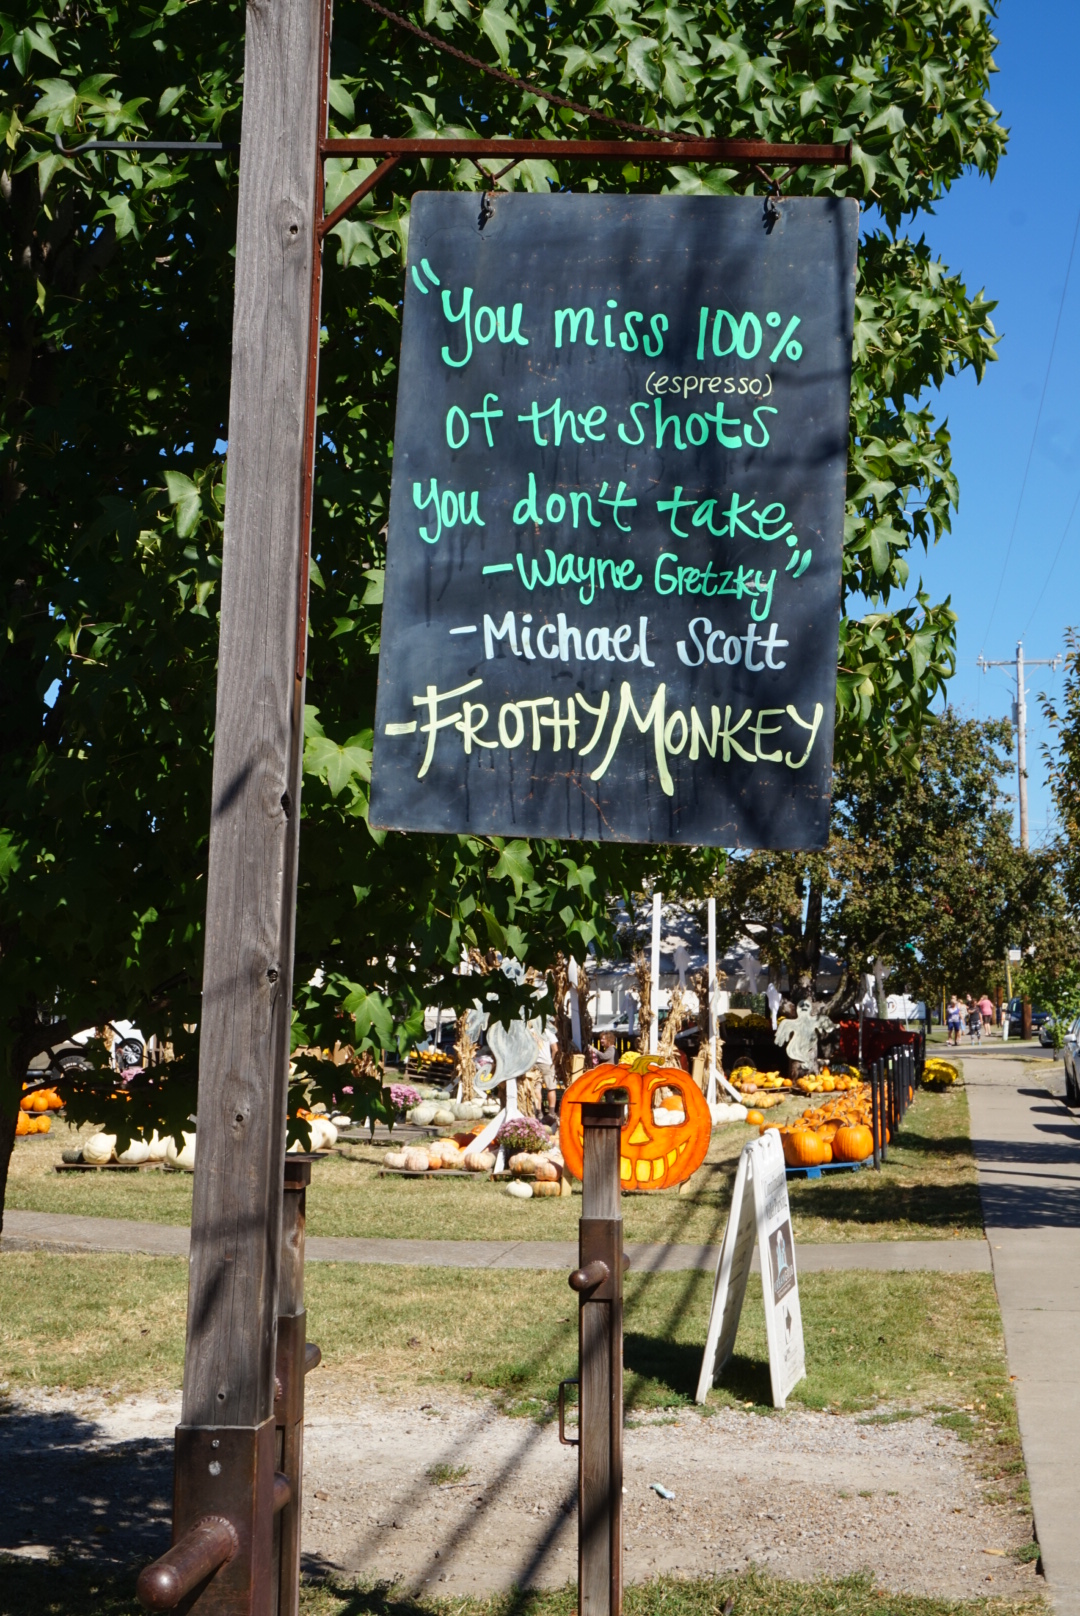 "You miss 100%
(espresso)
of the shots
you don't take."
-Wayne Gretzky
-Michael Scott
-FROTHY MONKEY